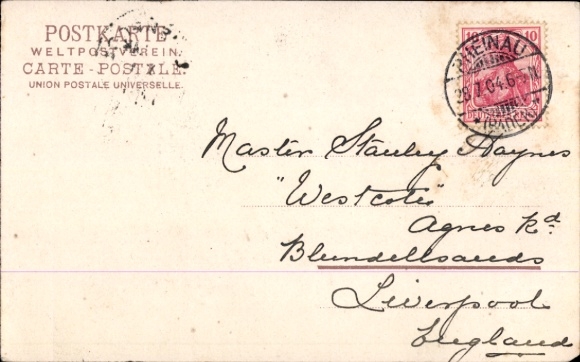 POSTKARTE
WELTPOSTVEREIN.
CARTE-POSTALE.
UNION POSTALE UNIVERSELLE.
10 10
RHEINAU
28.7.04.6-7N.
*(BADEN)*
Master Stanley Haynes
"Westcote"
Agnes Rd.
Blundellsands
Liverpool
England